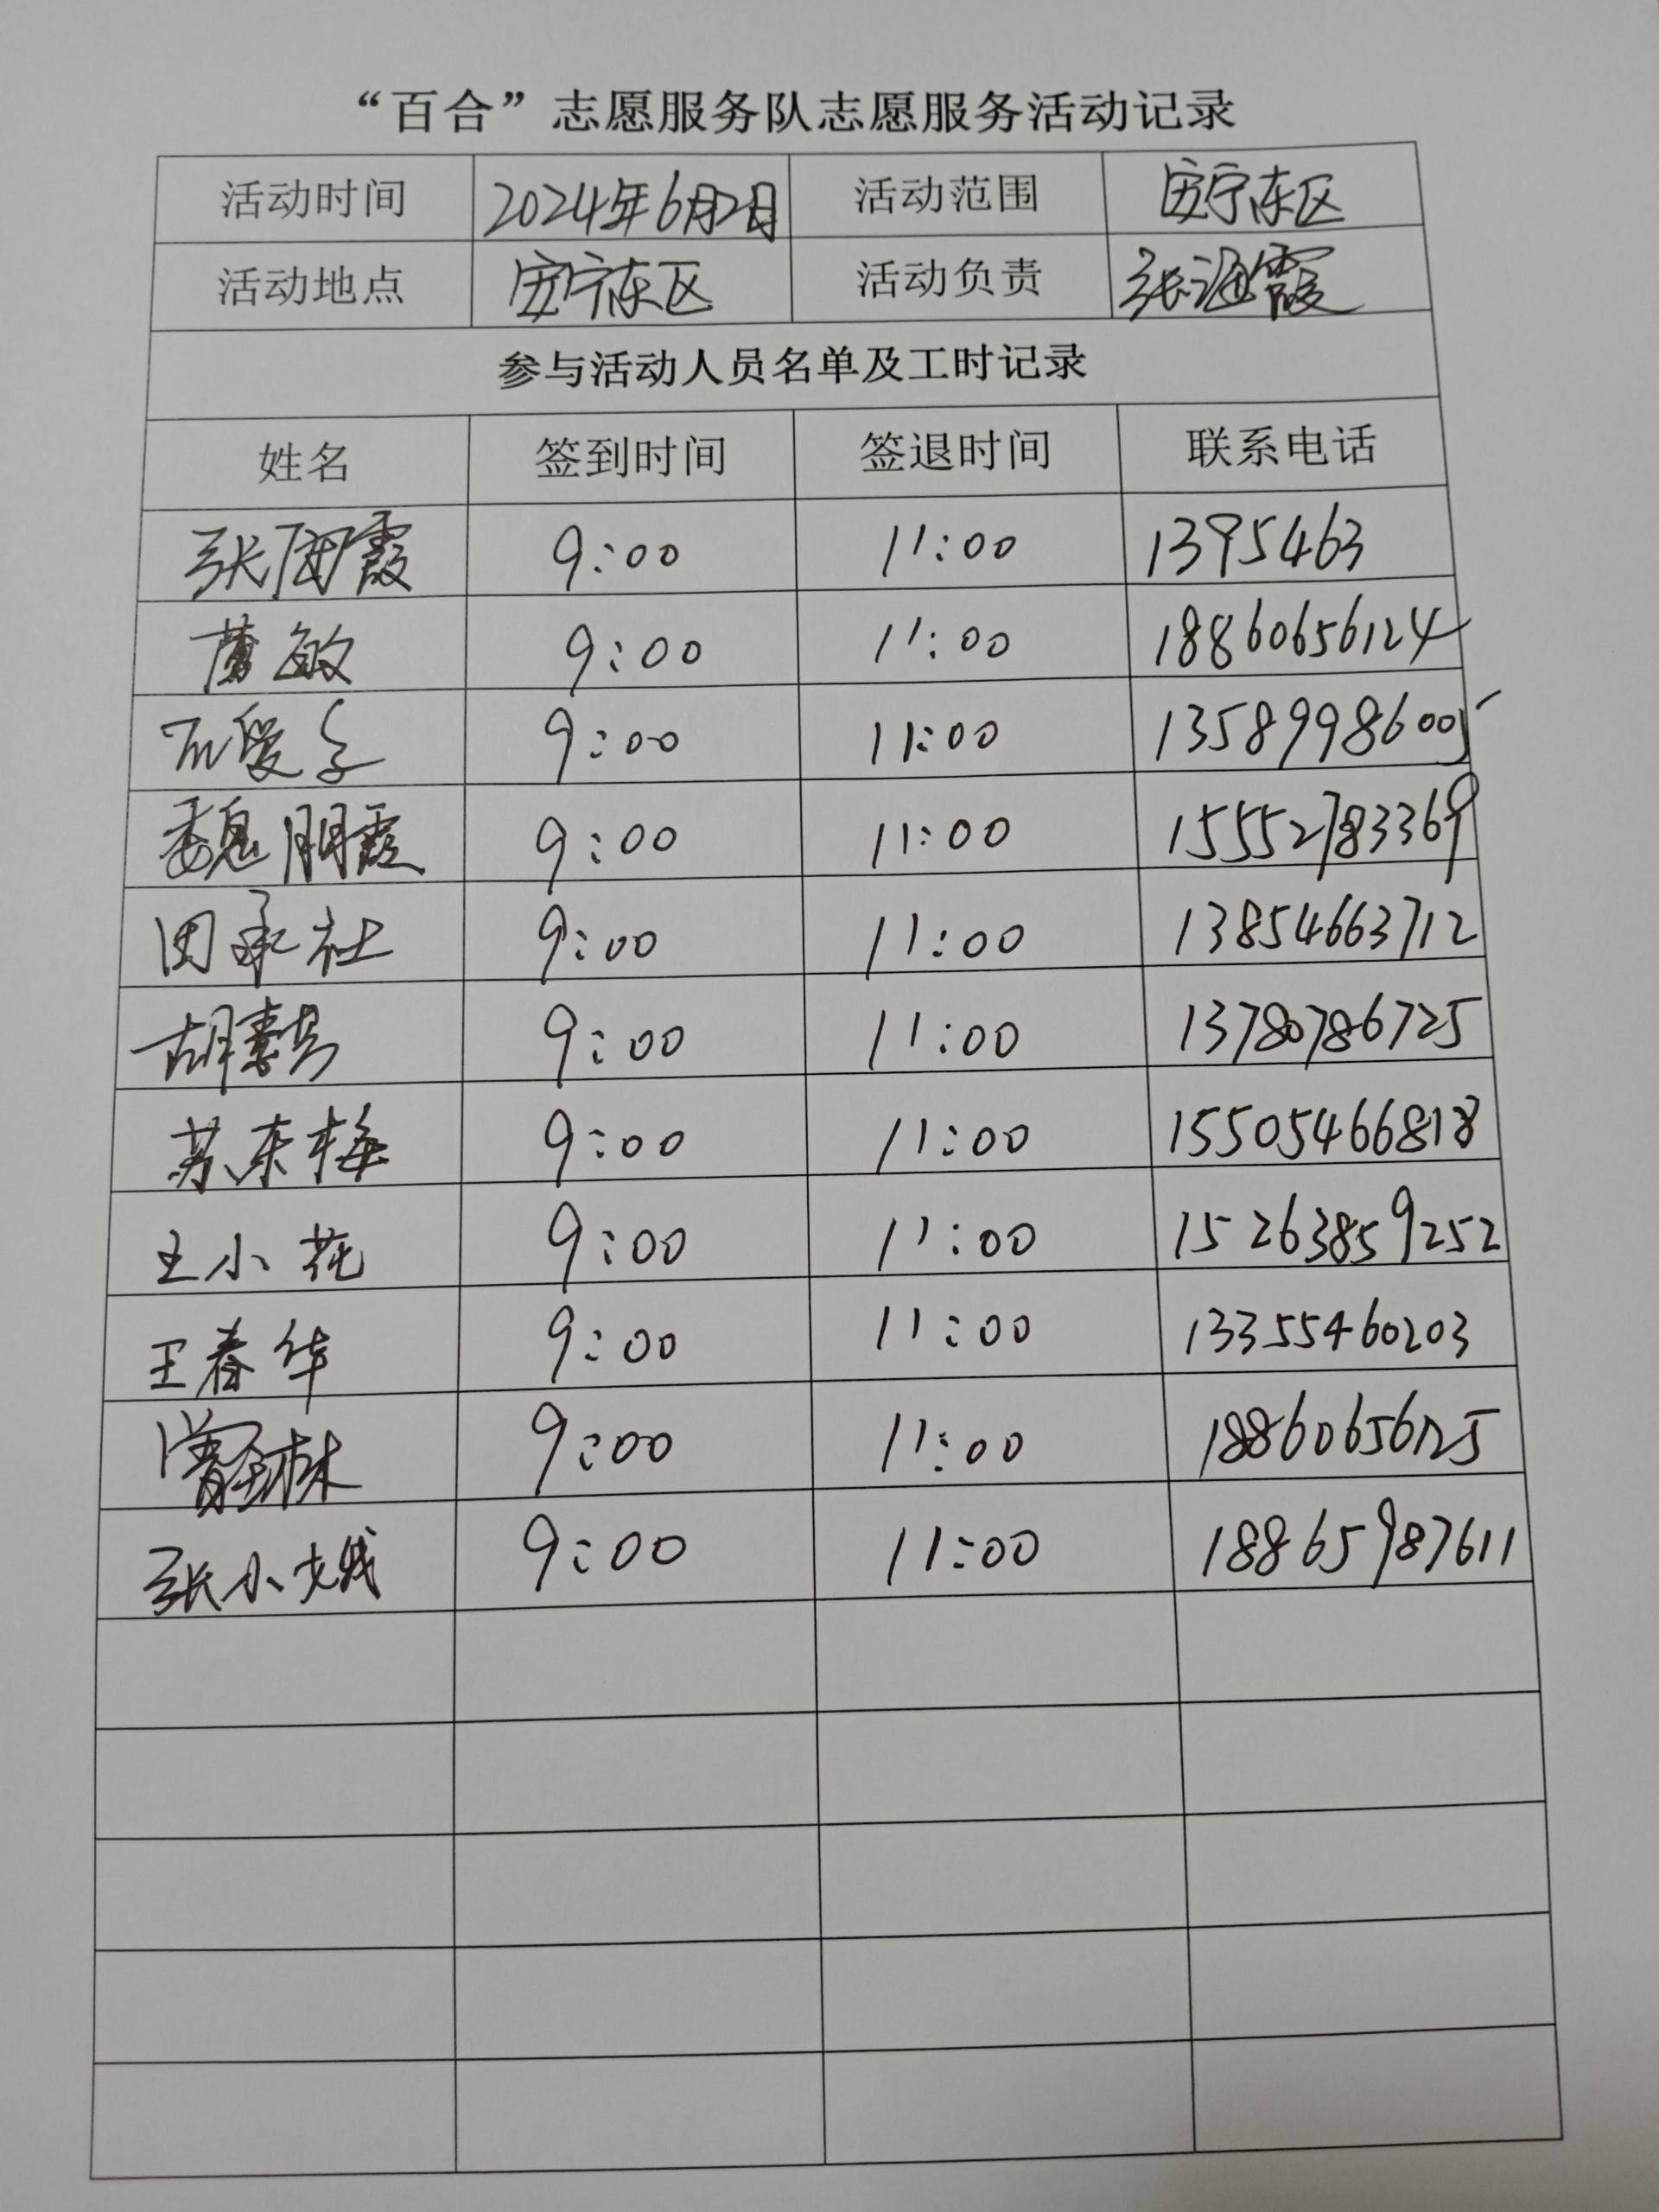 “百合”志愿服务队志愿服务活动记录
活动时间 2024年6月2日 活动范围 安宁东区
活动地点 安宁东区 活动负责 张海霞
参与活动人员名单及工时记录
姓名 签到时间 签退时间 联系电话
张海霞 9:00 11:00 1395463
敏 9:00 11:00 18860656124
爱 9:00 11:00 135899986005
魏朋霞 9:00 11:00 15552783369
田承社 9:00 11:00 13854663712
胡素芳 9:00 11:00 13780786725
苏东梅 9:00 11:00 15505466818
王小花 9:00 11:00 15263859252
王春华 9:00 11:00 13355460203
9:00 11:00 18860656125
张小娥 9:00 11:00 18865987611